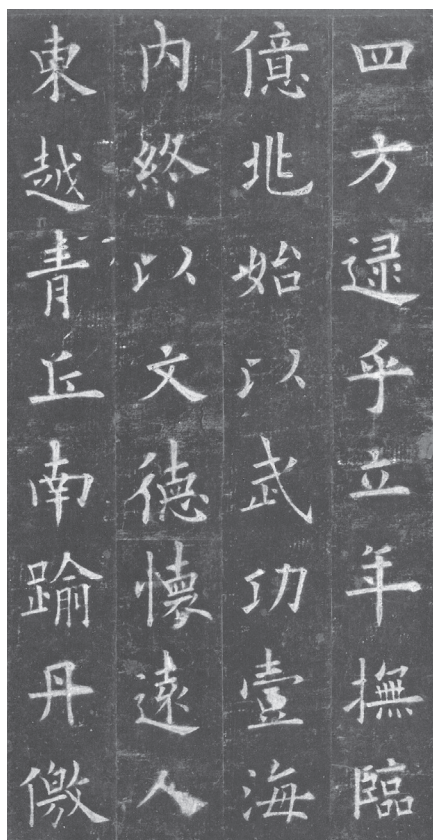 四方逯乎立年撫臨
億兆始以武功壹海
內終以文德懷遠人
東越青丘南踰丹徼